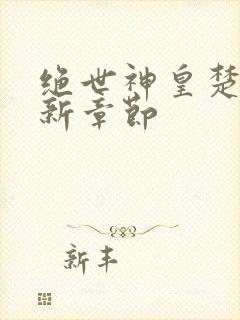 绝世神皇楚
新章节
新丰